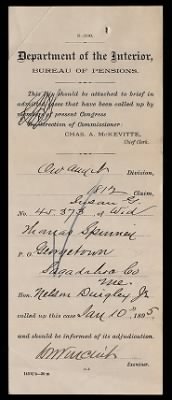 Department of the Interior,
BUREAU OF PENSIONS.
This slip should be attached to brief in
admitted cases that have been called up by
members of present Congress
direction of Commissioner:
CHAS. A. McKEVITTE,
Chief Clerk.
Division,
1812 Claim,
Susan G.
No. 45.373 of Wid
Thomas Spinney
P. O. Georgetown
Sagadahoc Co
Me.
Hon. Nelson Dingley Jr
called up this case Jan 10th, 1895
and should be informed of its adjudication.
Examiner.